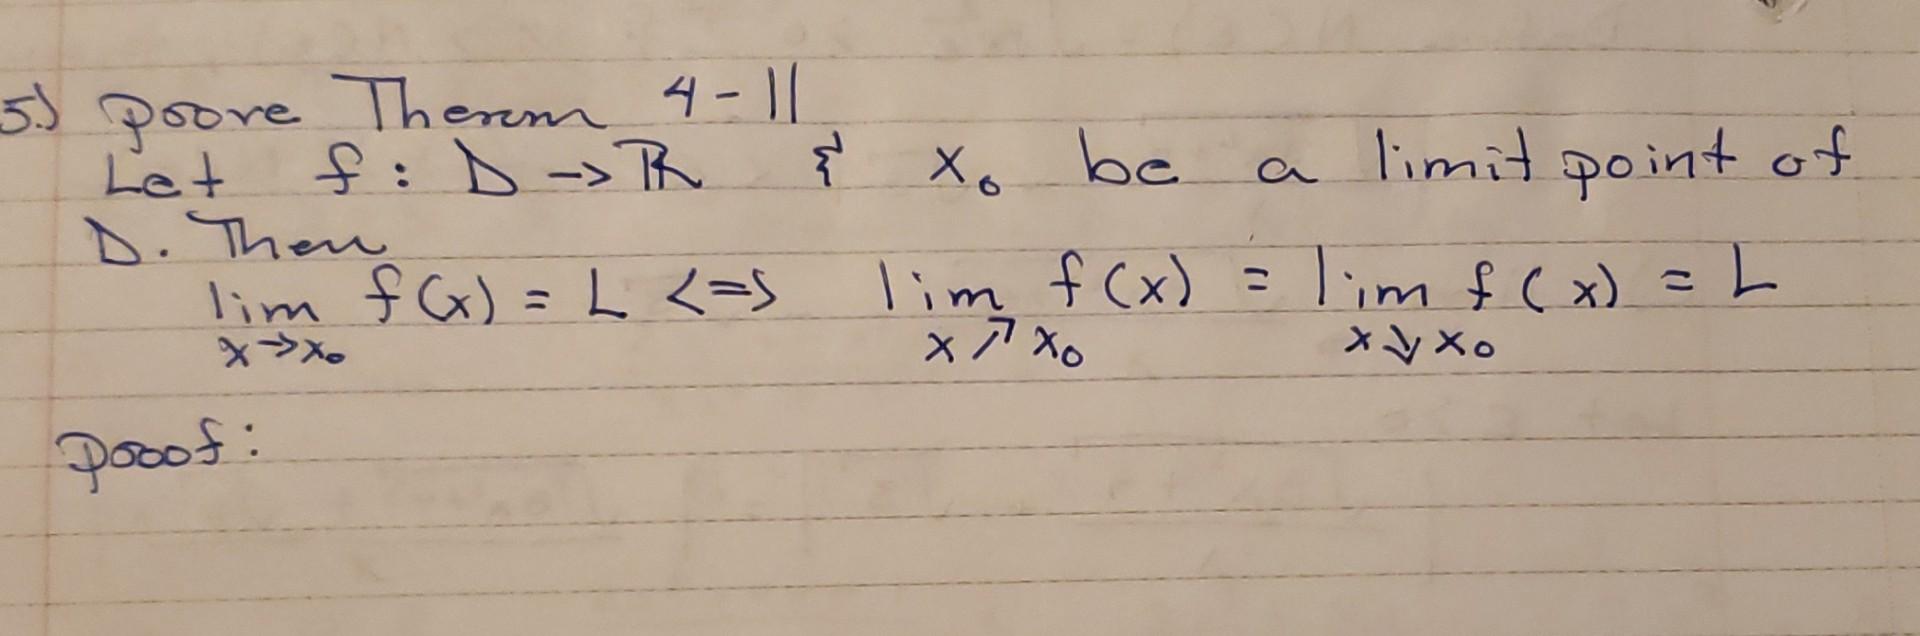 5.) Proove Therem 4-11
Let f: D → ℝ & x₀ be a limit point of
D. Then
lim f(x) = L <=> lim f(x) = lim f(x) = L
x→x₀ x↗x₀ x↓x₀
Prooof: